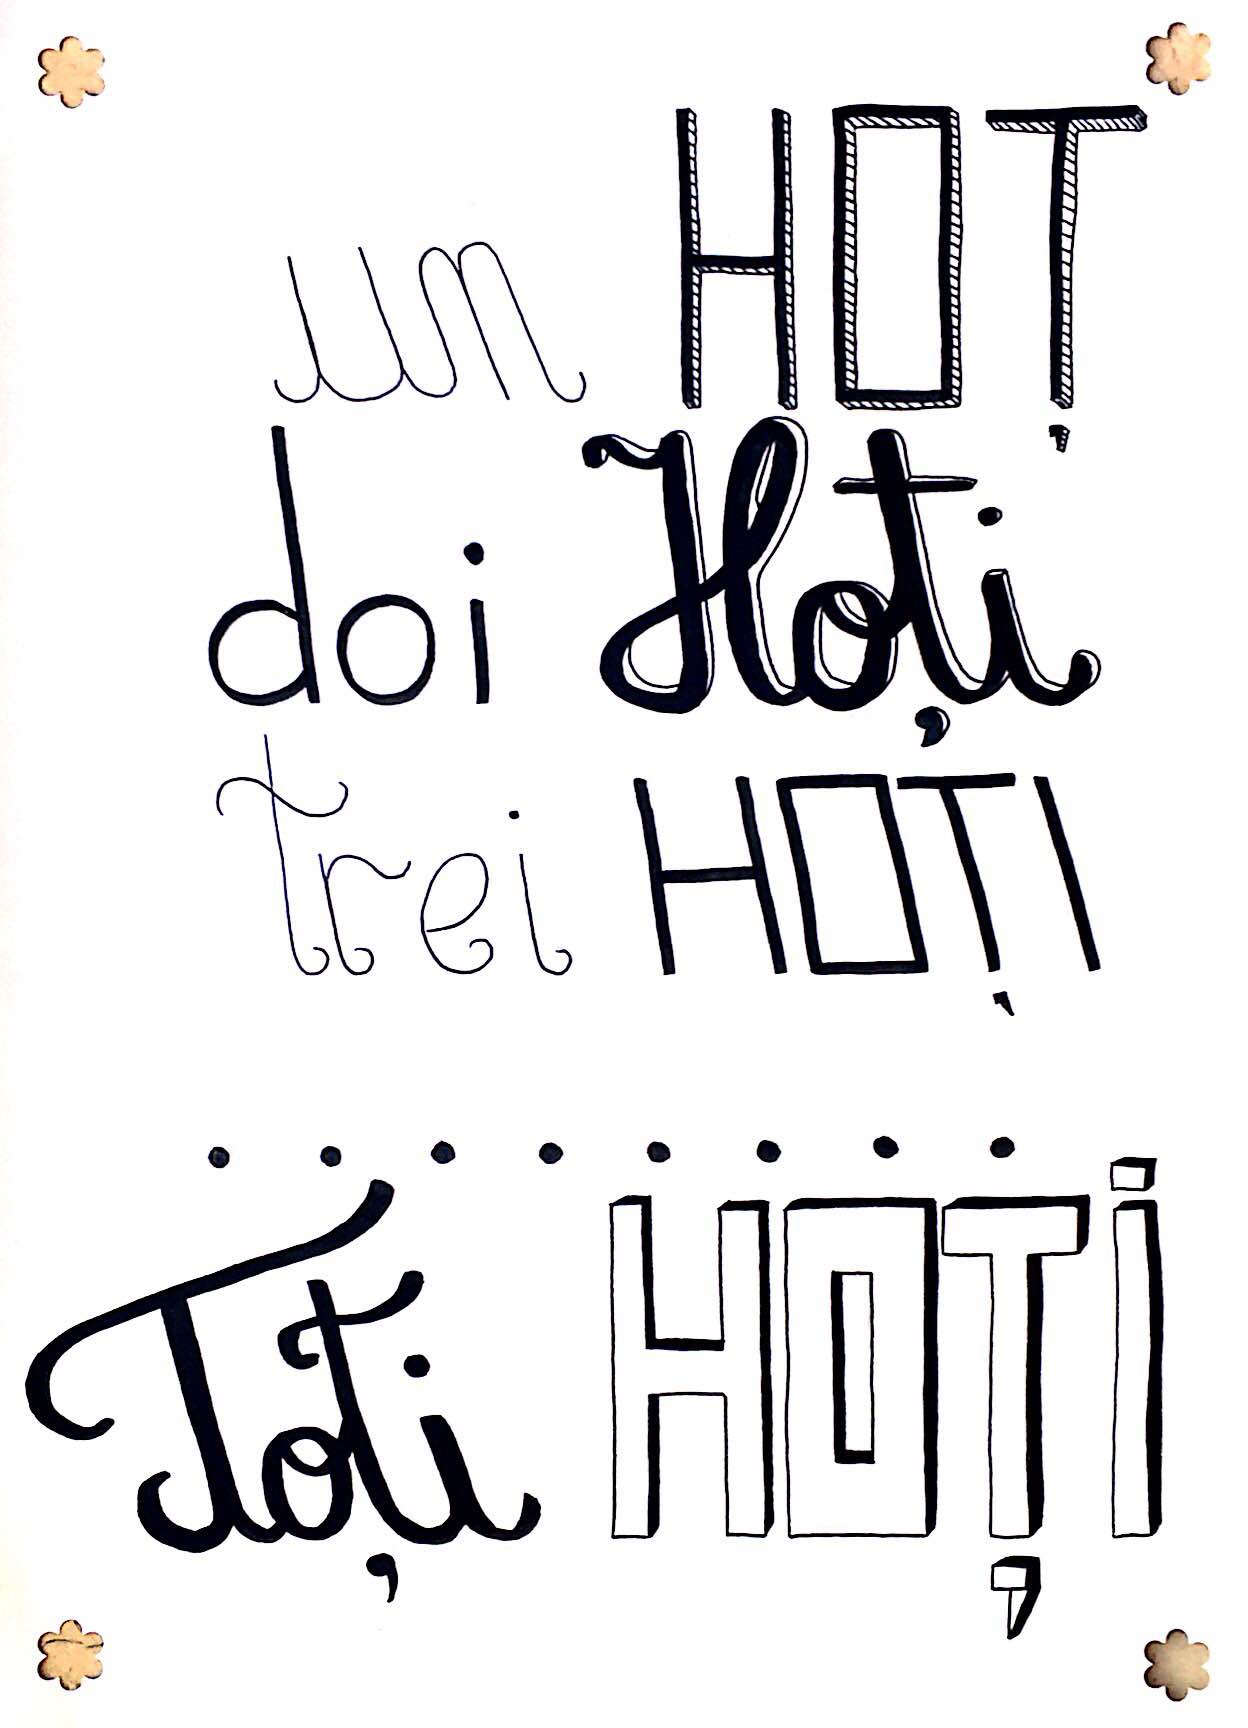 un HOȚ
doi Hoți
trei HOȚI
. . . . . . . .
Toți HOȚi